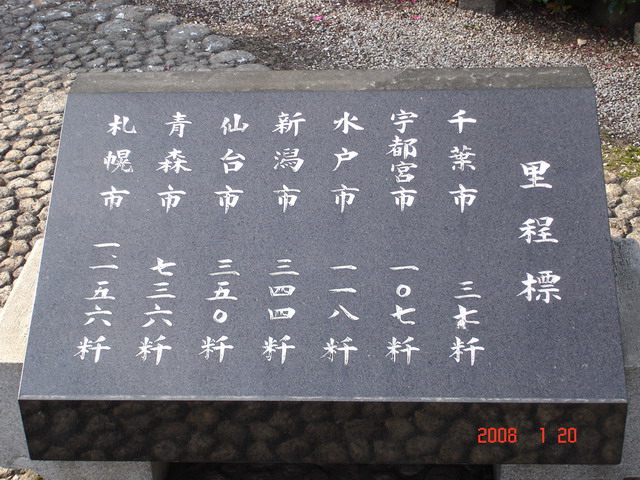 里程標
千葉市 三七粁
宇都宮市 一〇七粁
水戸市 一一八粁
新潟市 三四四粁
仙台市 三五〇粁
青森市 七三六粁
札幌市 一、一五六粁
2008 1 20